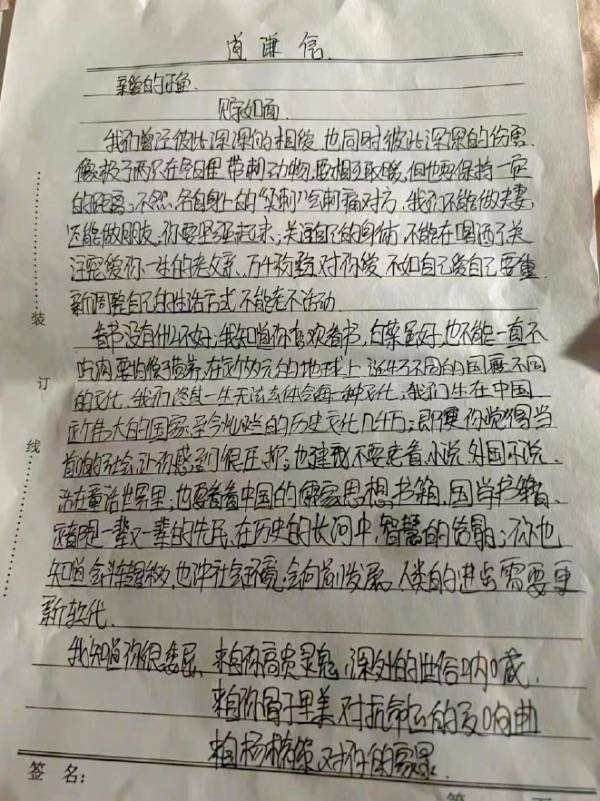 道谦信
亲爱的
见字如面
我们曾经彼此深深的相爱,也同时彼此深深的伤害.
像极了两只在冬日里带刺动物,要相互取暖,但也要保持一定
的距离;不然,各自身上的“尖刺”会刺痛对方.我们不能做夫妻
还能做朋友,你要坚强起来,关注自己的身体,不能在喝酒了关
注爱你一生的老父亲.万千 对你爱不如自己爱自己要重
新调整自己的生活方式不能老不活动.
看书没有什么不好,我知道你喜欢看书,白菜虽好,也不能一直不
吃肉要均衡营养,在这 的地球上诞生了不同的国度不同
的文化,我们终其一生无法去体会每一种文化;我们生在中国
这个伟大的国家,至今灿烂的历史文化几千 ;即便你觉得当
前的社会,让你感到很压抑;也建议不要老看小说,外国小说,
活在童话世界里;也要看看中国的儒家思想,书籍,国学书籍、
这都是一辈又一辈的先民,在历史的长河中,智慧的 ;你也
知道会 ,也 社会环境,会向前发展,人类的进步需要更
新
我知道你很委屈、来自你高贵灵魂,深处的世俗呐喊.
来自你骨子里美对抗命运的交响曲
来自杨 对你的
签名:
装
订
线